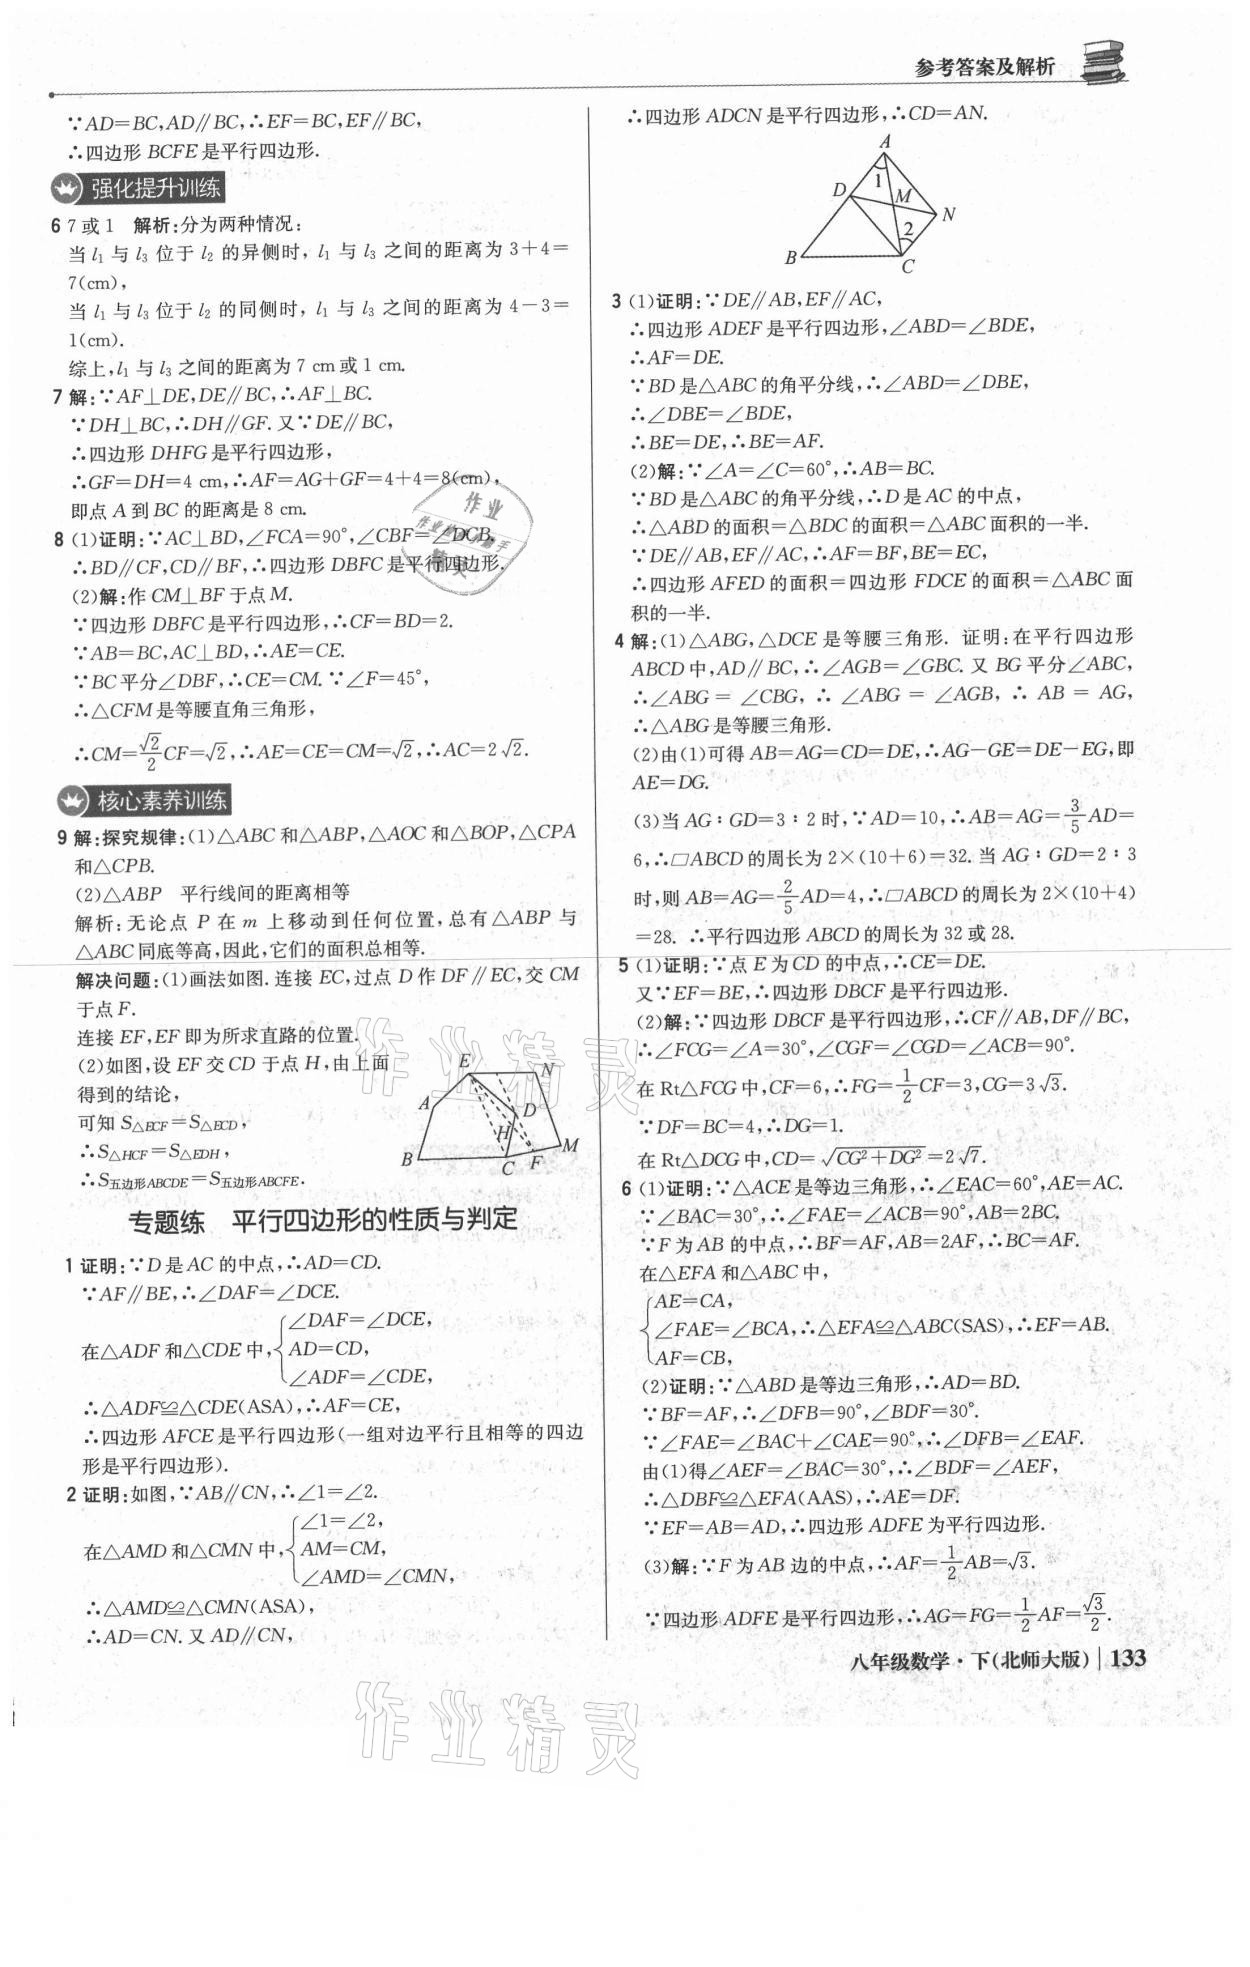 参考答案及解析
∵AD=BC,AD∥BC,∴EF=BC,EF∥BC,
∴四边形 BCFE 是平行四边形.
强化提升训练
6 7 或 1 解析:分为两种情况:
当 l₁ 与 l₃ 位于 l₂ 的异侧时, l₁ 与 l₃ 之间的距离为 3+4=
7(cm),
当 l₁ 与 l₃ 位于 l₂ 的同侧时, l₁ 与 l₃ 之间的距离为 4-3=
1(cm).
综上,l₁ 与 l₃ 之间的距离为 7 cm 或 1 cm.
7 解:∵AF⊥DE,DE∥BC,∴AF⊥BC.
∵DH⊥BC,∴DH∥GF.又∵DE∥BC,
∴四边形 DHFG 是平行四边形,
∴GF=DH=4 cm,∴AF=AG+GF=4+4=8(cm),
即点 A 到 BC 的距离是 8 cm.
8 (1)证明:∵AC⊥BD,∠FCA=90°,∠CBF=∠DCB,
∴BD∥CF,CD∥BF,∴四边形 DBFC 是平行四边形.
(2)解:作 CM⊥BF 于点 M.
∵四边形 DBFC 是平行四边形,∴CF=BD=2.
∵AB=BC,AC⊥BD,∴AE=CE.
∵BC 平分∠DBF,∴CE=CM.∵∠F=45°,
∴△CFM 是等腰直角三角形,
∴CM=√2/2 CF=√2,∴AE=CE=CM=√2,∴AC=2√2.
核心素养训练
9 解:探究规律:(1)△ABC 和△ABP,△AOC 和△BOP,△CPA
和△CPB.
(2)△ABP 平行线间的距离相等
解析:无论点 P 在 m 上移动到任何位置,总有△ABP 与
△ABC 同底等高,因此,它们的面积总相等.
解决问题:(1)画法如图.连接 EC,过点 D 作 DF∥EC,交 CM
于点 F.
连接 EF,EF 即为所求直路的位置.
(2)如图,设 EF 交 CD 于点 H,由上面
得到的结论,
可知 S△ECF=S△ECD,
∴S△HCF=S△EDH,
∴S五边形ABCDE=S五边形ABCFE.
E
N
A
D
H
B
C
F
M
专题练 平行四边形的性质与判定
1 证明:∵D 是 AC 的中点,∴AD=CD.
∵AF∥BE,∴∠DAF=∠DCE.
∠DAF=∠DCE,
在△ADF 和△CDE 中,{AD=CD,
∠ADF=∠CDE,
∴△ADF≌△CDE(ASA),∴AF=CE,
∴四边形 AFCE 是平行四边形(一组对边平行且相等的四边
形是平行四边形).
2 证明:如图,∵AB∥CN,∴∠1=∠2.
∠1=∠2,
在△AMD 和△CMN 中,{AM=CM,
∠AMD=∠CMN,
∴△AMD≌△CMN(ASA),
∴AD=CN.又 AD∥CN,
∴四边形 ADCN 是平行四边形,∴CD=AN.
A
1
D
M
N
2
B
C
3 (1)证明:∵DE∥AB,EF∥AC,
∴四边形 ADEF 是平行四边形,∠ABD=∠BDE,
∴AF=DE.
∵BD 是△ABC 的角平分线,∴∠ABD=∠DBE,
∴∠DBE=∠BDE,
∴BE=DE,∴BE=AF.
(2)解:∵∠A=∠C=60°,∴AB=BC.
∵BD 是△ABC 的角平分线,∴D 是 AC 的中点,
∴△ABD 的面积=△BDC 的面积=△ABC 面积的一半.
∵DE∥AB,EF∥AC,∴AF=BF,BE=EC,
∴四边形 AFED 的面积=四边形 FDCE 的面积=△ABC 面
积的一半.
4 解:(1)△ABG,△DCE 是等腰三角形. 证明:在平行四边形
ABCD 中,AD∥BC,∴∠AGB=∠GBC.又 BG 平分∠ABC,
∴∠ABG=∠CBG,∴∠ABG=∠AGB,∴AB=AG,
∴△ABG 是等腰三角形.
(2)由(1)可得 AB=AG=CD=DE,∴AG-GE=DE-EG,即
AE=DG.
(3)当 AG∶GD=3∶2 时,∵AD=10,∴AB=AG=3/5 AD=
6,∴□ABCD 的周长为 2×(10+6)=32.当 AG∶GD=2∶3
时,则 AB=AG=2/5 AD=4,∴□ABCD 的周长为 2×(10+4)
=28. ∴平行四边形 ABCD 的周长为 32 或 28.
5 (1)证明:∵点 E 为 CD 的中点,∴CE=DE.
又∵EF=BE,∴四边形 DBCF 是平行四边形.
(2)解:∵四边形 DBCF 是平行四边形,∴CF∥AB,DF∥BC,
∴∠FCG=∠A=30°,∠CGF=∠CGD=∠ACB=90°.
在 Rt△FCG 中,CF=6,∴FG=1/2 CF=3,CG=3√3.
∵DF=BC=4,∴DG=1.
在 Rt△DCG 中,CD=√(CG²+DG²)=2√7.
6 (1)证明:∵△ACE 是等边三角形,∴∠EAC=60°,AE=AC.
∵∠BAC=30°,∴∠FAE=∠ACB=90°,AB=2BC.
∵F 为 AB 的中点,∴BF=AF,AB=2AF,∴BC=AF.
在△EFA 和△ABC 中,
AE=CA,
{∠FAE=∠BCA,∴△EFA≌△ABC(SAS),∴EF=AB.
AF=CB,
(2)证明:∵△ABD 是等边三角形,∴AD=BD.
∵BF=AF,∴∠DFB=90°,∠BDF=30°.
∵∠FAE=∠BAC+∠CAE=90°,∴∠DFB=∠EAF.
由(1)得∠AEF=∠BAC=30°,∴∠BDF=∠AEF,
∴△DBF≌△EFA(AAS),∴AE=DF.
∵EF=AB=AD,∴四边形 ADFE 为平行四边形.
(3)解:∵F 为 AB 边的中点,∴AF=1/2 AB=√3.
∵四边形 ADFE 是平行四边形,∴AG=FG=1/2 AF=√3/2.
八年级数学·下(北师大版) 133
作业精灵
作业精灵